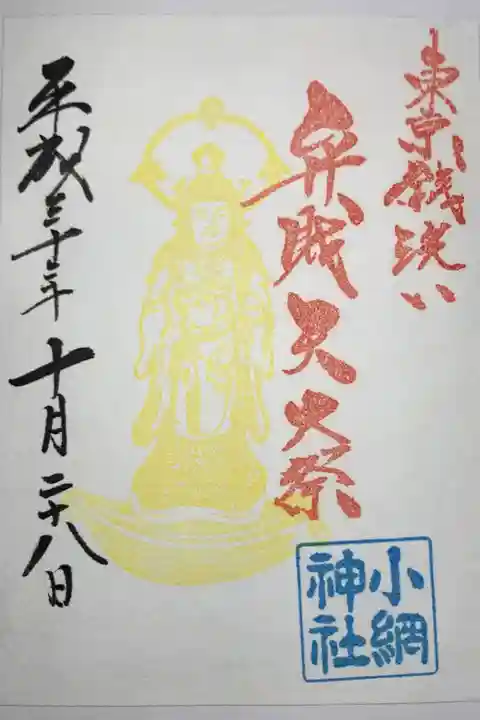 東京銭洗い
弁財天大祭
小網
神社
平成三十年
十月二十八日